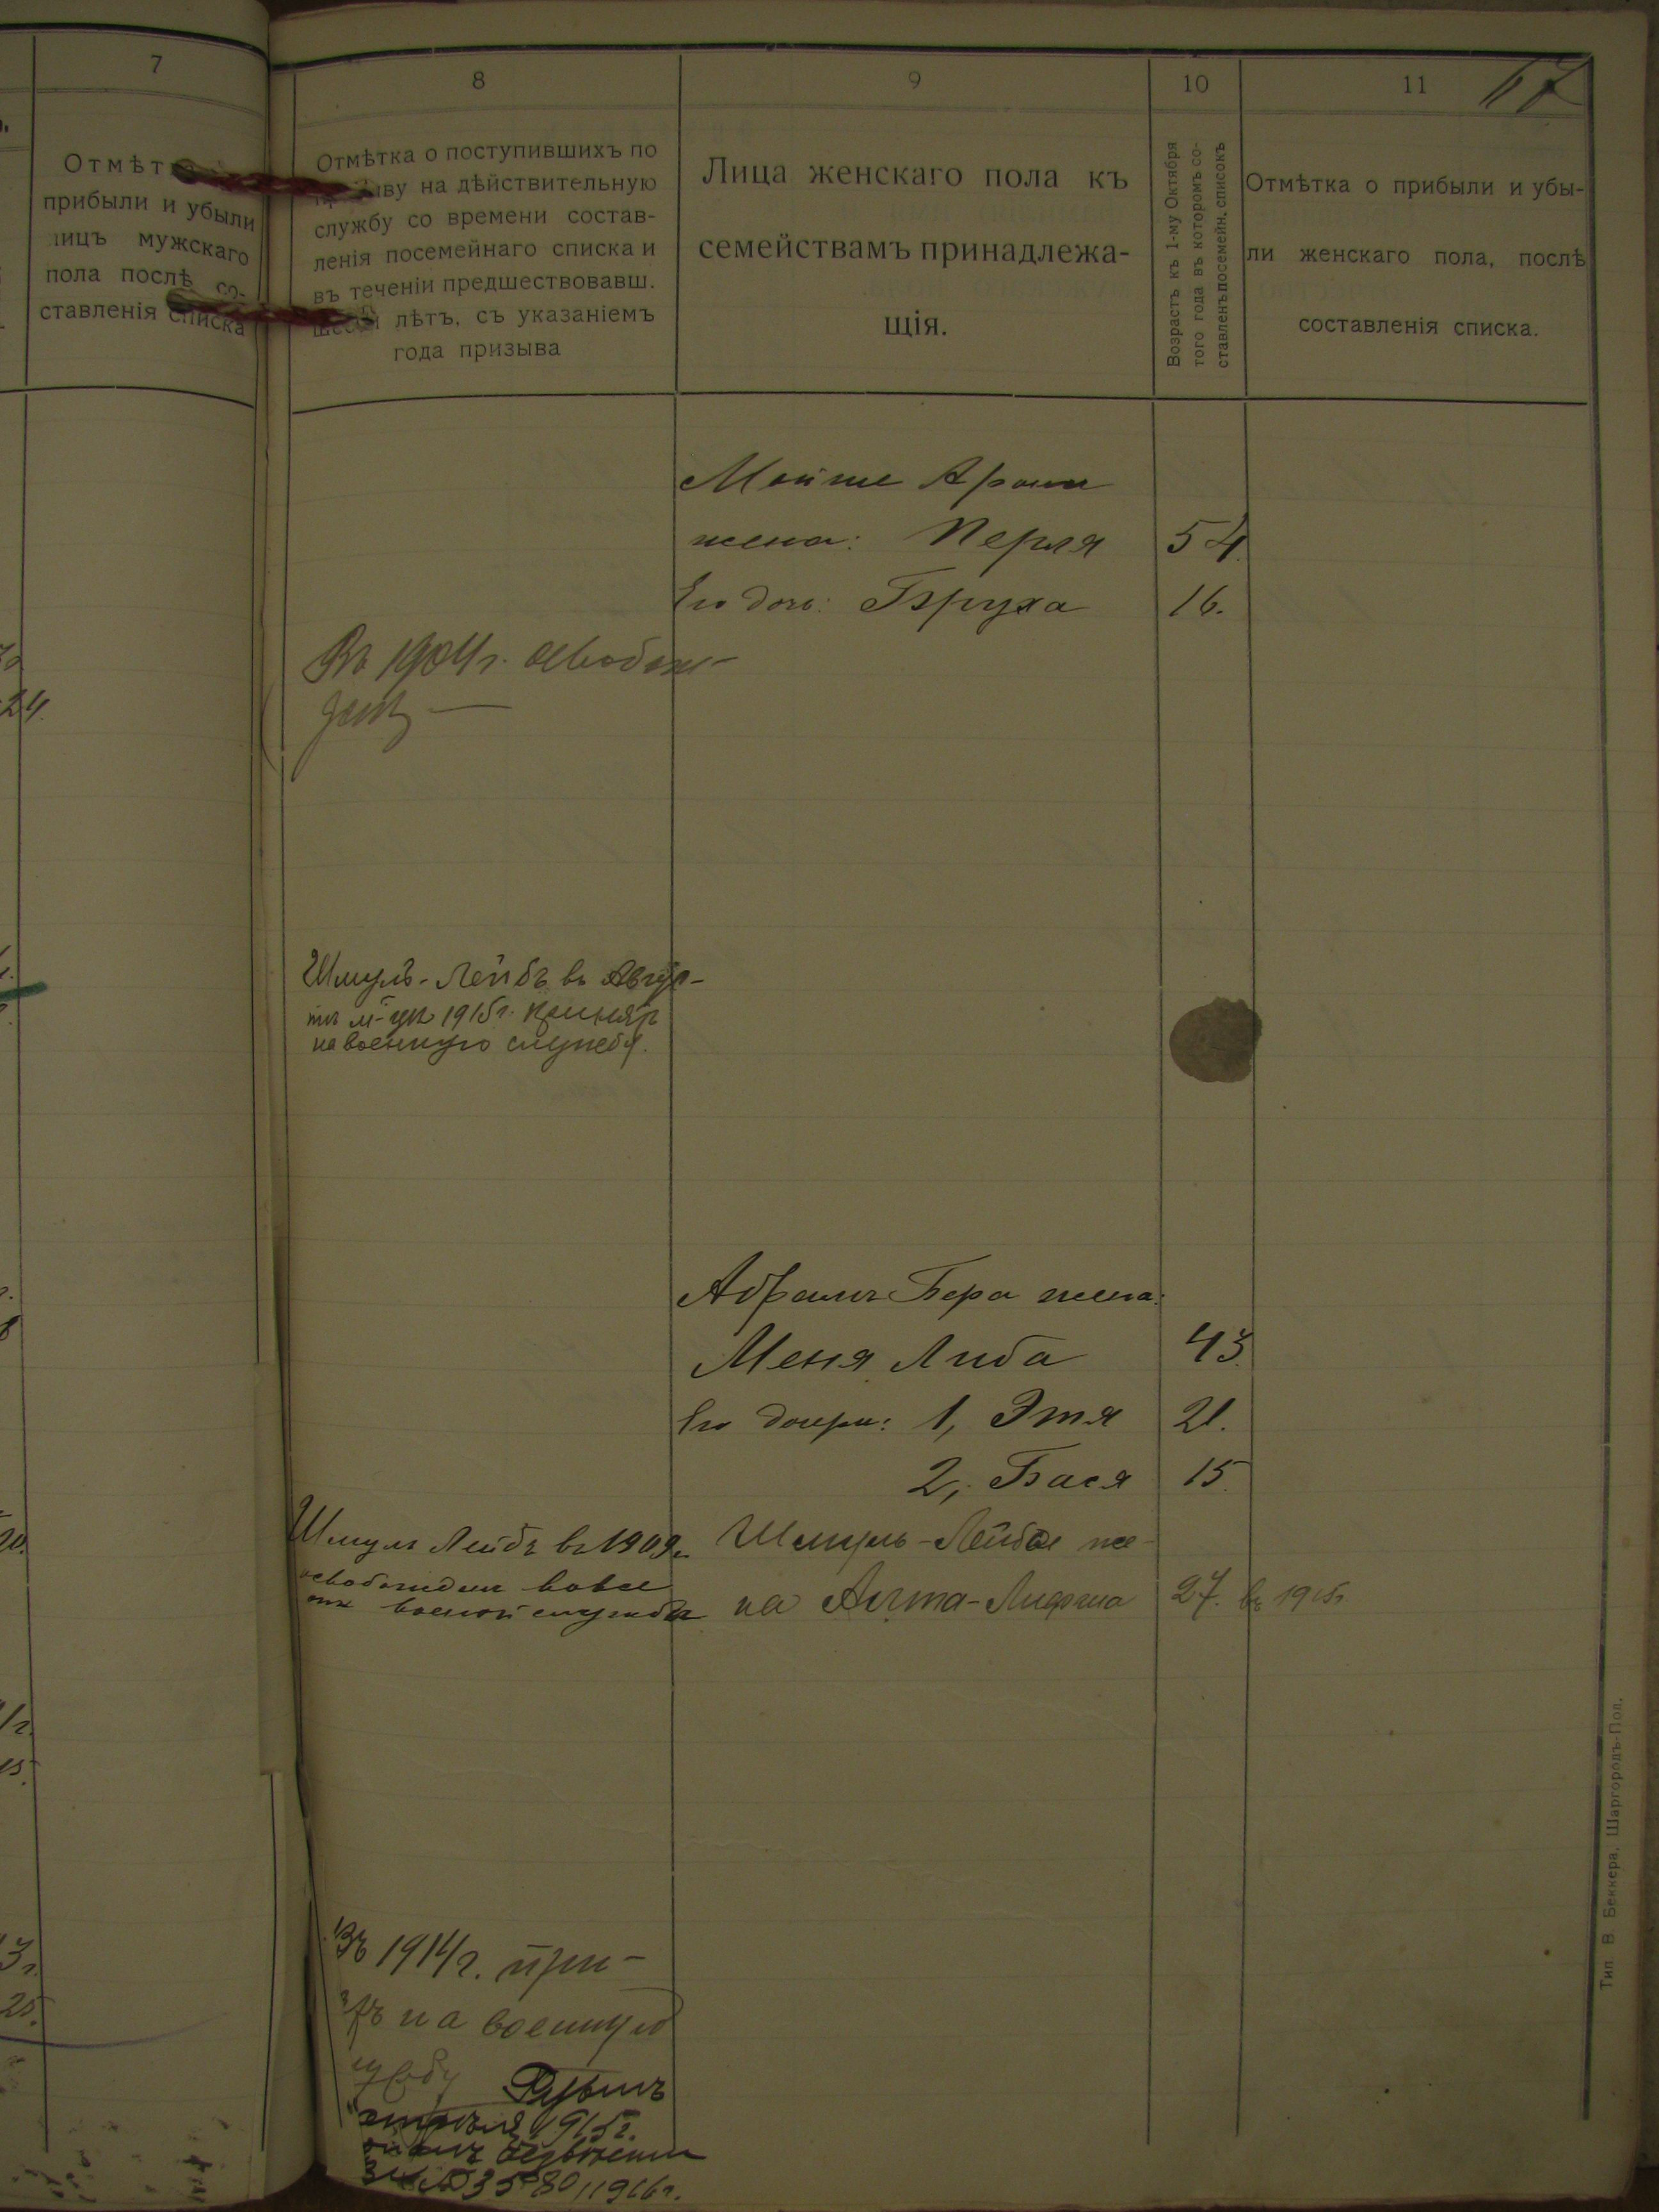 7
Отмѣт
прибыли и убыли
лицъ мужскаго
пола послѣ со-
ставленія списка
24.
8
9
10
11
67
Отмѣтка о поступившихъ по
на дѣйствительную
службу со времени состав-
ленія посемейнаго списка и
въ теченіи предшествовавш.
лѣтъ, съ указаніемъ
года призыва
Лица женскаго пола къ
семействамъ принадлежа-
щія.
Возрастъ къ 1-му Октября
того года въ которомъ со-
ставленъ посемейн. списокъ
Отмѣтка о прибыли и убы-
ли женскаго пола, послѣ
составленія списка.
Мойше Арона
жена: Перля 54
Его дочь: Бруха 16.
Въ 1904 г. освобож-
денъ
Шмуль-Лейбъ въ Авгус-
тѣ м-цѣ 1915 г. принятъ
на военную службу.
Абрамъ Бера жена:
Меня Либа 43.
Его дочери: 1, Этя 21.
2, Бася 15.
Шмуль Лейбъ въ 1909 г.
освобожденъ вовсе
отъ военной службы
Шмуль-Лейба же-
на Алта- 27. въ 1915 г.
Въ 1914 г. при-
на военную
Рувинъ
1915 г.
35780 1916 г.
Тип. В. Беккера, Шаргородъ-Под.